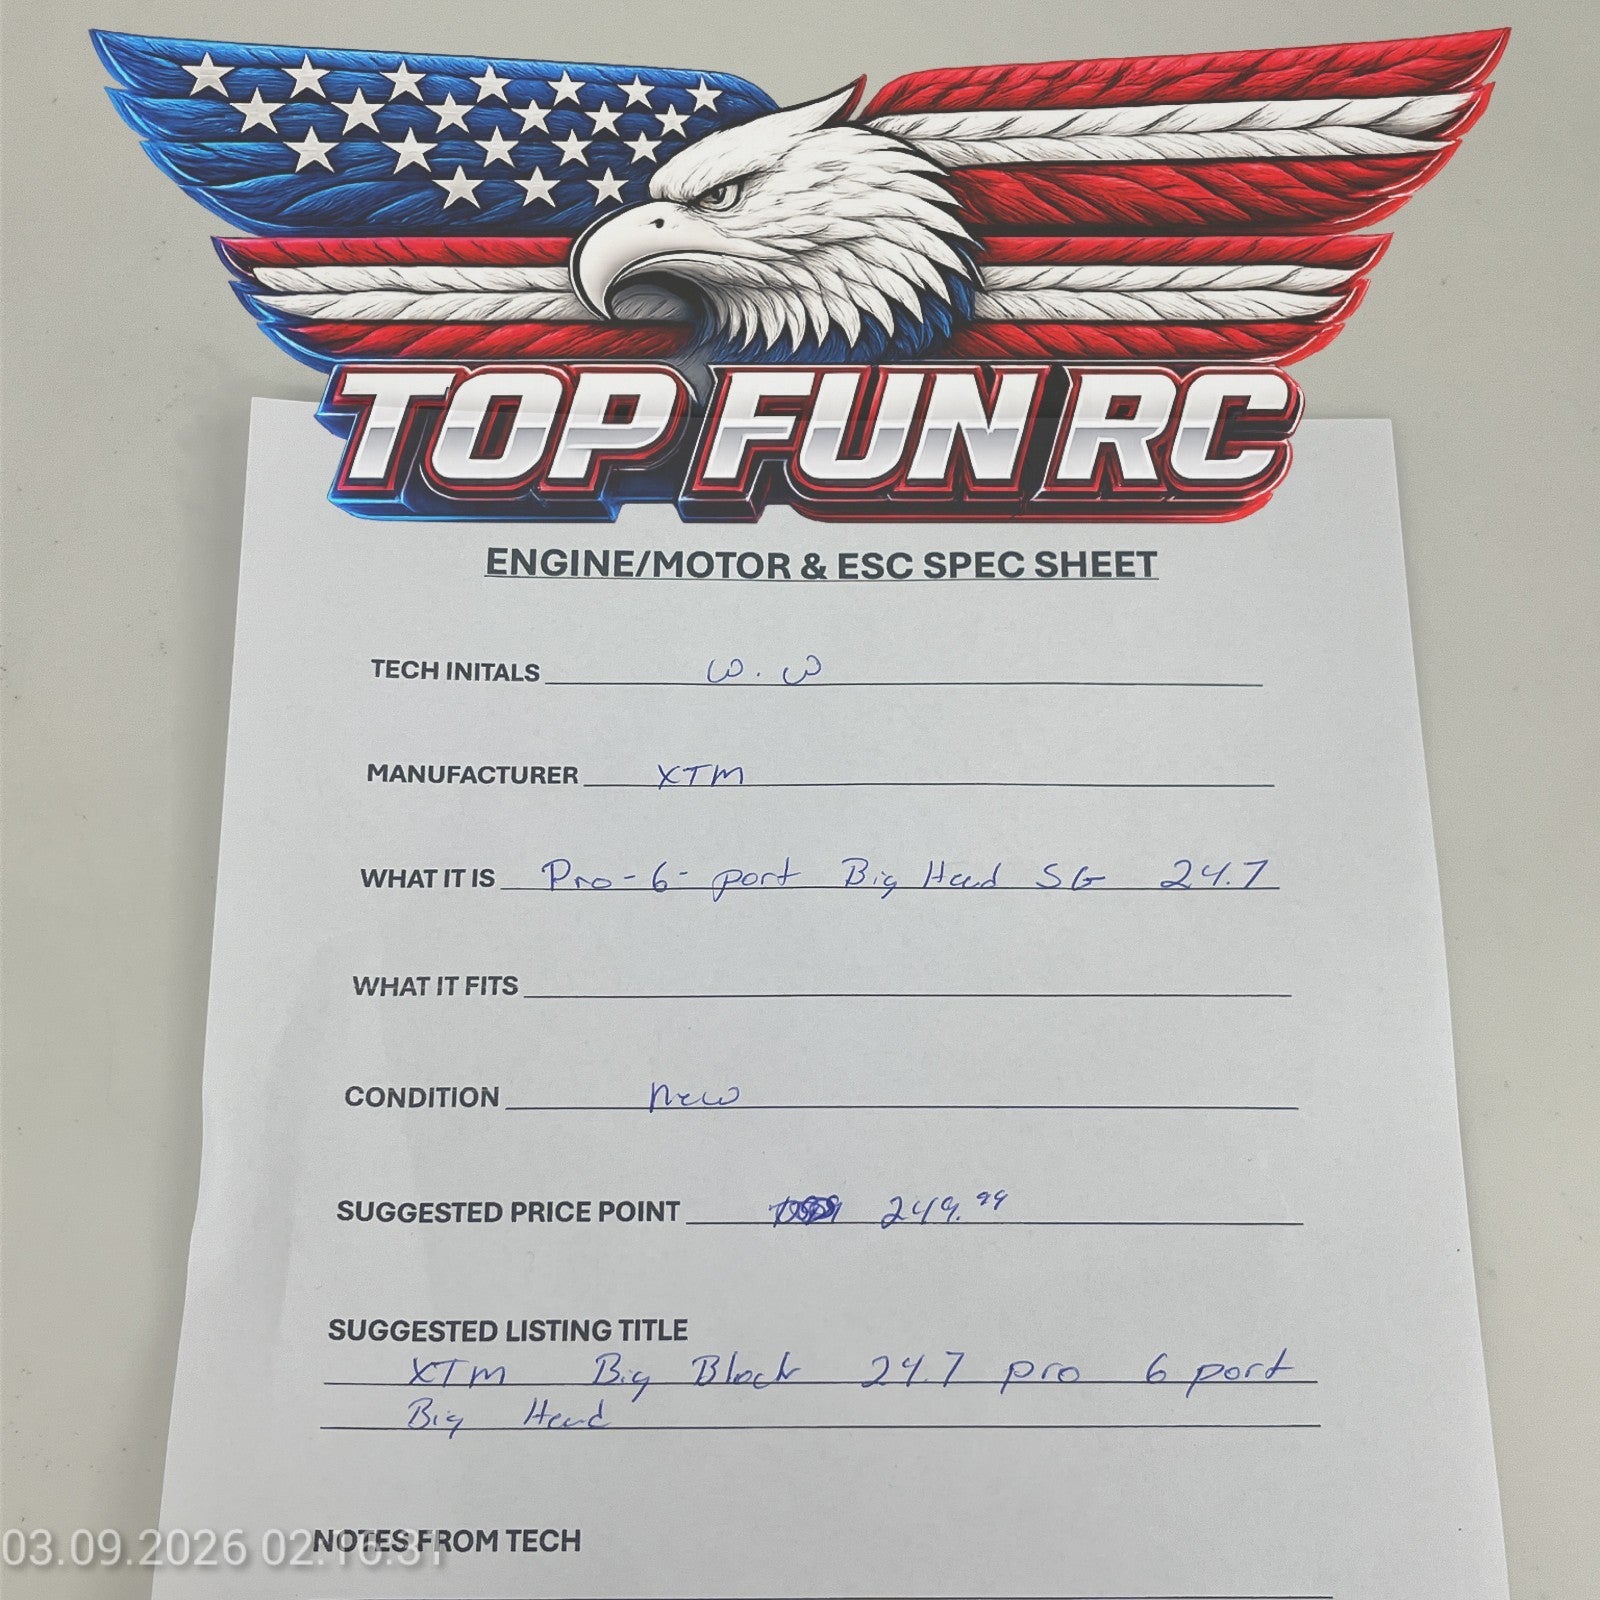 TOP FUN RC
ENGINE/MOTOR & ESC SPEC SHEET
TECH INITALS W.W
MANUFACTURER XTM
WHAT IT IS Pro-6-port Big Head SG 24.7
WHAT IT FITS
CONDITION New
SUGGESTED PRICE POINT 249.99
SUGGESTED LISTING TITLE
XTM Big Block 24.7 pro 6 port
Big Head
NOTES FROM TECH
03.09.2026 02:16:31